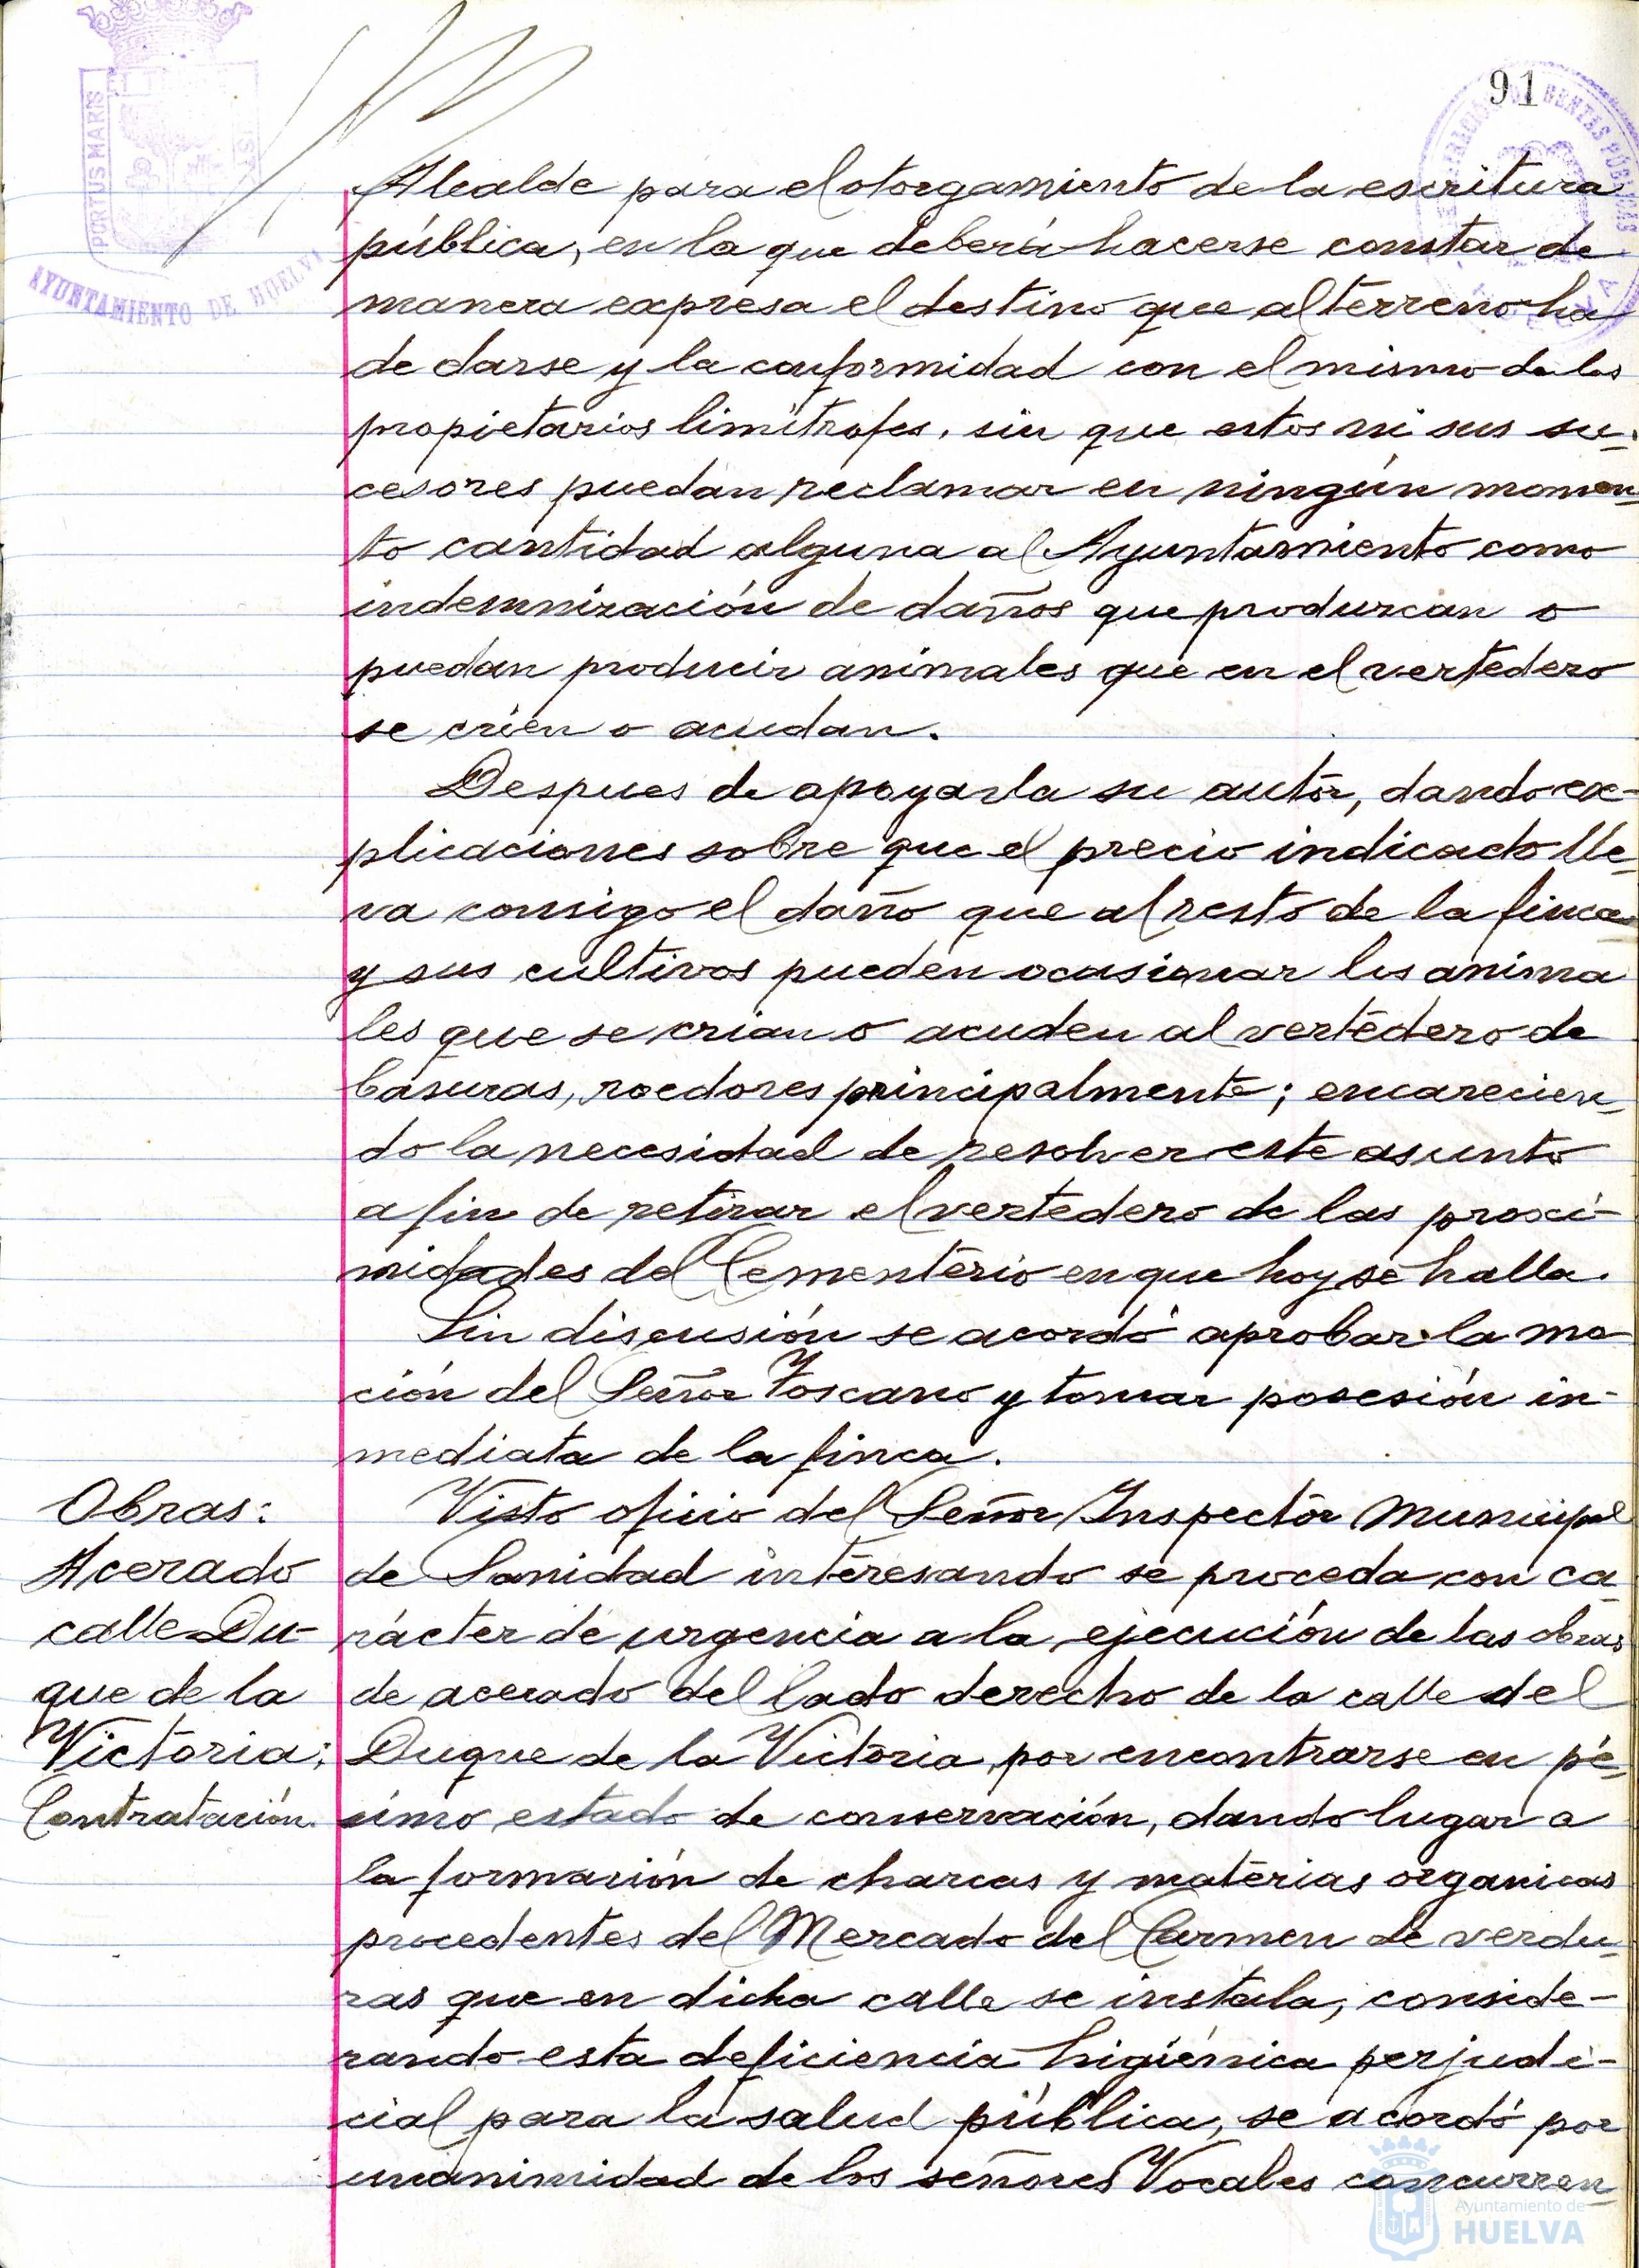 91
PORTUS MARIS
AYUNTAMIENTO DE HUELVA
Alcalde para el otorgamiento de la escritura
pública, en la que deberá hacerse constar de
manera expresa el destino que al terreno ha
de darse y la conformidad con el mismo de los
propietarios limítrofes, sin que estos ni sus su-
cesores puedan reclamar en ningún momen-
to cantidad alguna al Ayuntamiento como
indemnización de daños que produzcan o
puedan producir animales que en el vertedero
se crien o acudan.
Despues de apoyarla su autor, dando ex-
plicaciones sobre que el precio indicado lle-
va consigo el daño que al resto de la finca
y sus cultivos pueden ocasionar los anima
les que se crian o acuden al vertedero de
basuras, roedores principalmente; encarecien-
do la necesidad de resolver este asunto
a fin de retirar el vertedero de las proxi-
midades del Cementerio en que hoy se halla.
Sin discusión se acordó aprobar la mo-
ción del Señor Toscano y tomar posesión in-
mediata de la finca.
Obras:
Acerado
calle Du-
que de la
Victoria:
Contratación.
Visto oficio del Señor Inspector Municipal
de Sanidad interesando se proceda con ca
rácter de urgencia a la ejecución de las obras
de acerado del lado derecho de la calle del
Duque de la Victoria, por encontrarse en pé-
simo estado de conservación, dando lugar a
la formación de charcas y materias organicas
procedentes del Mercado del Carmen de verdu-
ras que en dicha calle se instala, conside-
rando esta deficiencia higiénica perjudi-
cial para la salud pública, se acordó por
unanimidad de los señores Vocales concurren-
Ayuntamiento de
HUELVA